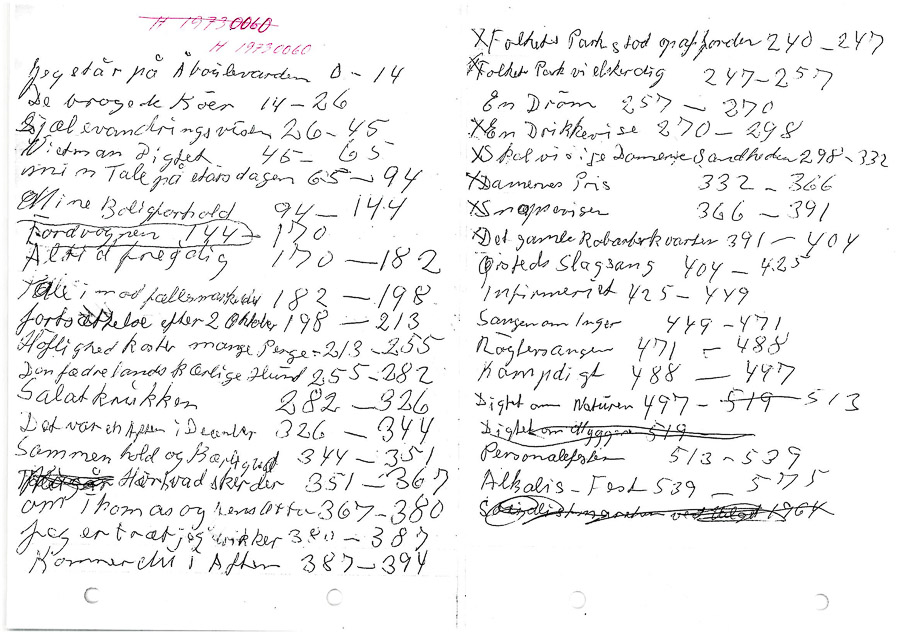 H 19730060
H 19730060
Jeg står på Åboulevarden 0-14
De brogede Köer 14-26
Sjælevandringsvisen 26-45
Vietman Digtet 45-65
min Tale på etårsdagen 65-94
Mine Boligforhold 94-144
Fordvognen 144-170
Altid frejdig 170-182
Tale imod fællesmarkedet 182-198
fortsættelse efter 2 Oktober 198-213
Höflighed koster mange Penge-213-255
Den fædrelandskærlige Hund 255-282
Salatkrukken 282-326
Det var en Aften i December 326-344
Sammenhold og Kærlighed 344-351
Hør hvad sker der 351-367
om Thomas og hens Lotte 367-380
Jeg er træt jeg 380-387
Kommer du i Aften 387-394
XFolkets Park stod op af jorden 240-247
XFolkets Park vi elsker dig 247-257
En Dröm 257-270
XEn Drikkevise 270-298
XSkal vi sige Damerne Sandheden 298-332
XDamenes Pris 332-366
XSnapsevisen 366-391
XDet gamle Rabarberkvarter 391-404
Örsteds Slagsang 404-425
Infirmeriet 425-449
Sangen om Inger 449-471
Rögtersangen 471-488
Kampdigt 488-497
Digt om Naturen 497-519-513
Digtet om Hyggen 519
Personalefesten 513-539
Alkalis-Fest 539-575